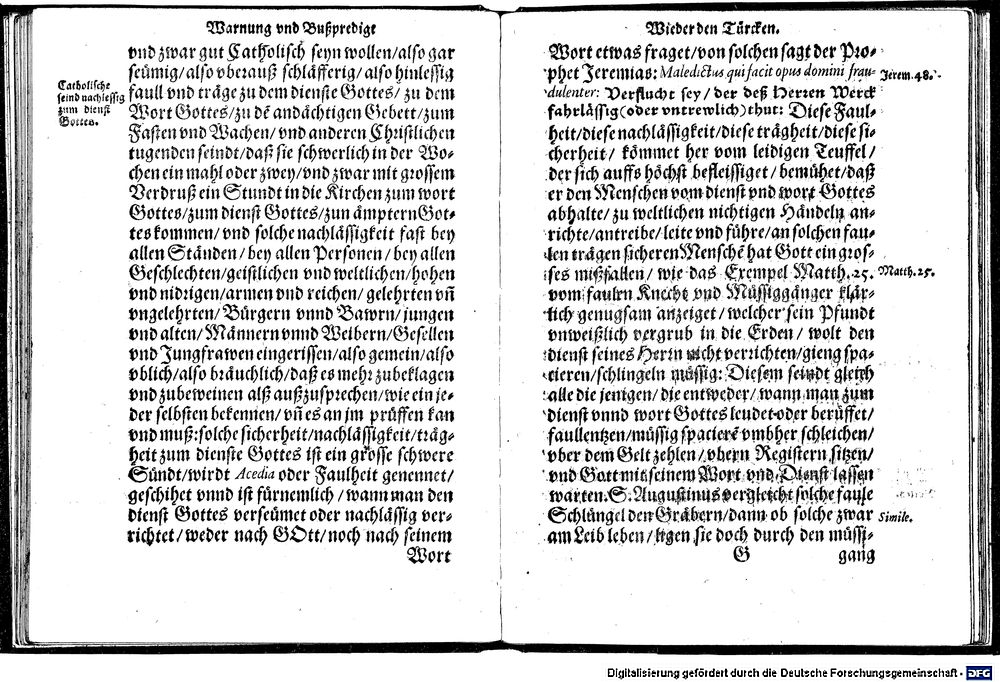 Warnung vnd Bußpredige
vnd zwar gut Catholisch seyn wollen/also gar
seümig/also vberauß schläfferig/also hinlessig
faull vnd träge zu dem dienste Gottes/ zu dem
Wort Gottes/zu dē andächtigen Gebett/zum
Fasten vnd Wachen/vnd anderen Christlichen
tugenden seindt/daß sie schwerlich in der Wo-
chen ein mahl oder zwey/vnd zwar mit grossem
Verdruß ein Stundt in die Kirchen zum wort
Gottes/zum dienst Gottes/zun ämptern Got-
tes kommen/ vnd solche nachlässigkeit fast bey
allen Ständen/ bey allen Personen/ bey allen
Geschlechten/geistlichen vnd weltlichen/hohen
vnd nidrigen/armen vnd reichen/ gelehrten vñ
vngelehrten/ Bürgern vnnd Bawrn/ jungen
vnd alten/ Männern vnnd Weibern/Gesellen
vnd Jungfrawen eingerissen/also gemein/also
vblich/also bräuchlich/daß es mehr zubeklagen
vnd zubeweinen alß außzusprechen/wie ein je-
der selbsten bekennen/ vñ es an jm prüffen kan
vnd muß: solche sicherheit/nachlässigkeit/träg-
heit zum dienste Gottes ist ein grosse schwere
Sündt/wirdt Acedia oder Faulheit genennet/
geschihet vnnd ist fürnemlich / wann man den
dienst Gottes verseümet oder nachlässig ver-
richtet/ weder nach GOtt/ noch nach seinem
Wort
Catholische
seind nachlessig
zum dienst
Gottes.
Wieder den Türcken.
Wort etwas fraget/von solchen sagt der Pro-
phet Jeremias: Maledictus qui facit opus domini frau-
dulenter: Verflucht sey / der deß Herren Werck
fahrlässig (oder vntrewlich) thut: Diese Faul-
heit/diese nachlässigkeit/diese trägheit/diese si-
cherheit/ kömmet her vom leidigen Teuffel/
der sich auffs höchst befleissiget/ bemühet/daß
er den Menschen vom dienst vnd wort Gottes
abhalte/ zu weltlichen nichtigen Händeln an-
richte/antreibe/ leite vnd führe/an solchen fau-
len trägen sicheren Menschē hat Gott ein gros-
ses mißfallen/ wie das Exempel Matth. 25.
vom faulen Knecht vnd Müssiggänger klär-
lich genugsam anzeiget / welcher sein Pfundt
vnweißlich vergrub in die Erden/ wolt den
dienst seines Herrn nicht verrichten/gieng spa-
cieren/schlingeln müssig: Diesem seindt gleich
alle die jenigen/ die entweder/ wann man zum
dienst vnnd wort Gottes leudet oder berüffet/
faullentzen/müssig spacierē vmbher schleichen/
vber dem Gelt zehlen/ vbern Registern sitzen/
vnd Gott mit seinem Wort vnd Dienst lassen
warten. S. Augustinus vergleicht solche faule
Schlüngel den Gräbern/dann ob solche zwar
am Leib leben/ ligen sie doch durch den müssi-
G gang
Jerem. 48.
Matth. 25.
Simile.
Digitalisierung gefördert durch die Deutsche Forschungsgemeinschaft - DFG